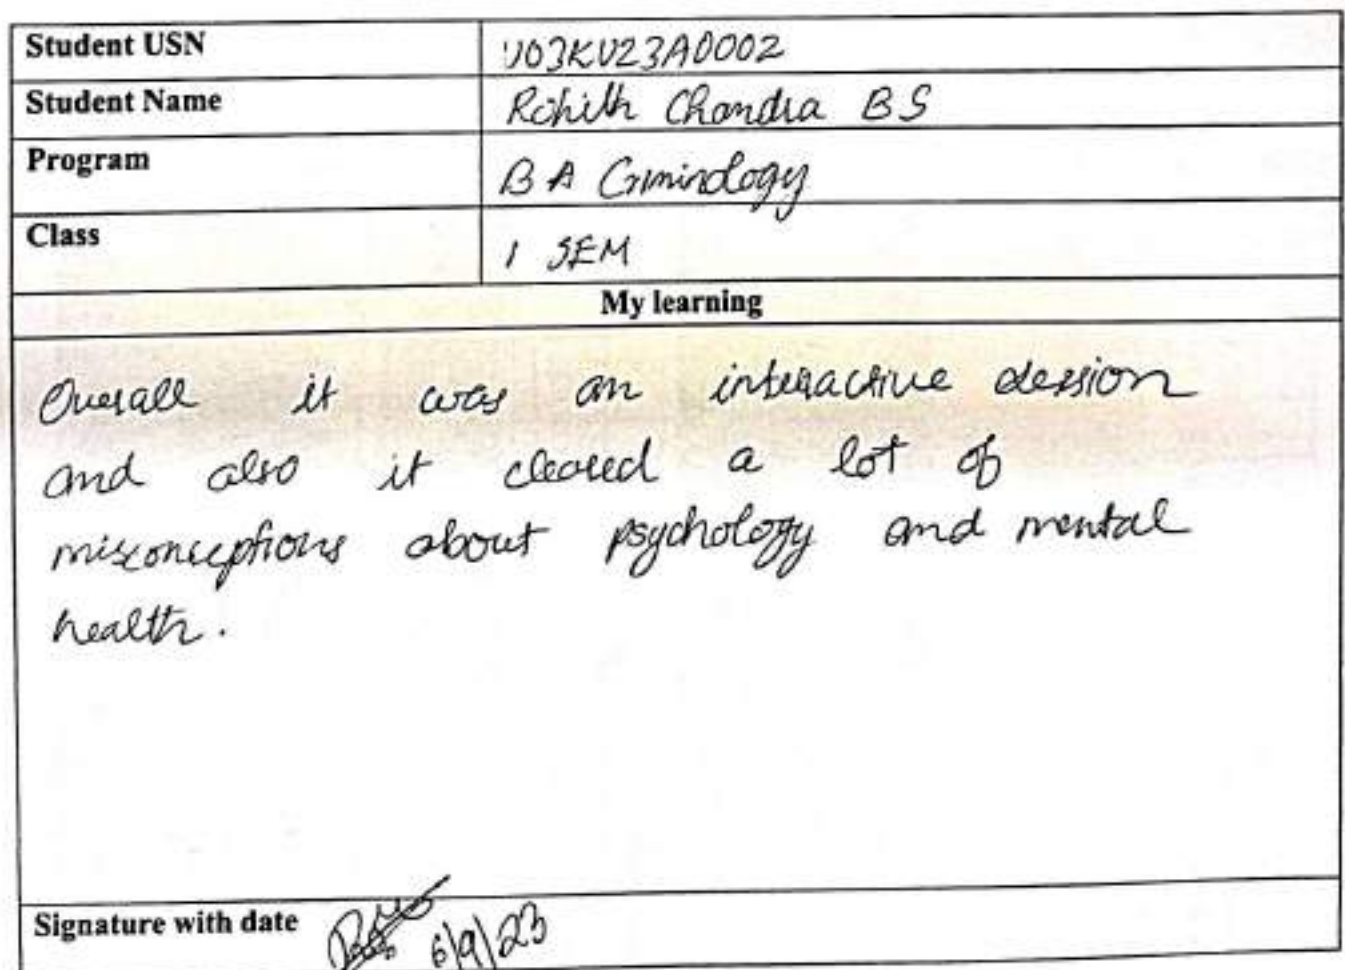 Student USN U03KU23A0002
Student Name Rohith Chandra B S
Program B A Criminology
Class 1 SEM
My learning
Overall it was an interactive session
and also it cleared a lot of
misconceptions about psychology and mental
health.
Signature with date 6/9/23